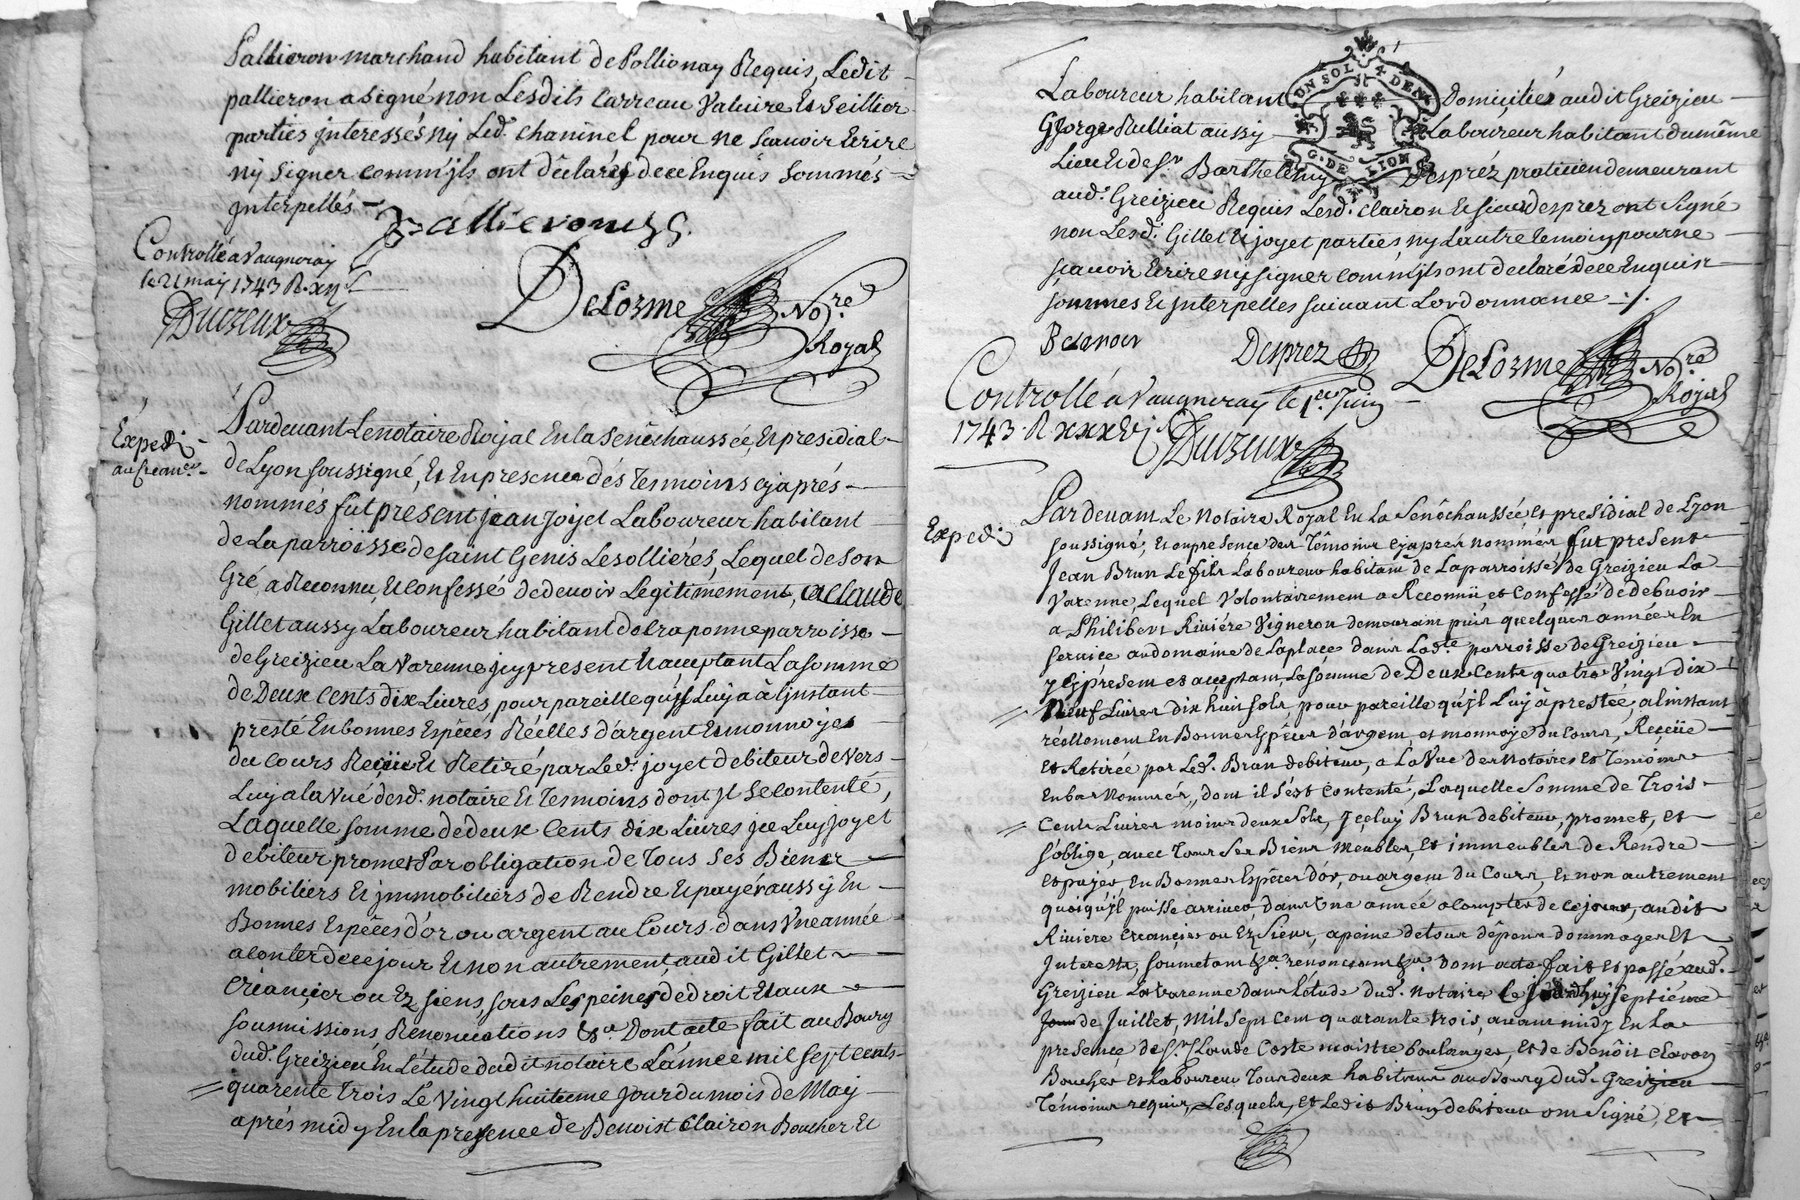 Pallieron marchand habitant de Pollionay Requis, Ledit
pallieron a signé non Lesdits Carreau Valuire Et Seillior
parties jnteressés ny Led. chaninel pour ne scavoir Ecrire
ny signer comm'jls ont déclarés de ce Enquis sommés
jnterpellés
Pallieron
Controllé a Vaugneray
le 21 may 1743 R. xij s
Duvreux
DeLorme No.re
Royal
Exped.
au creancer.
Pardevant Le notaire Royal En la Sénéchaussée, Et presidial
de Lyon soussigné, Et En presence dés Tesmoins cy aprés
nommés fut present jean Joyet Laboureur habitant
de La parroisse de saint Genis Les ollières, Lequel de son
Gré, a Reconnu, Et confessé de devoir Legitimement, a Claude
Gillet aussy Laboureur habitant de parroisse
de Greizieu La Varenne jcy present Et acceptant La somme
de Deux Cents dix Livres, pour pareille qu'jl Luy a à L'jnstant
presté En bonnes Espéces Réelles d'argent Et monnoye
du cours Reçüe Et Retiré par Led. joyet debiteur de vers
Luy a la vué desd. notaire Et Tesmoins dont jl se contente,
Laquelle somme de deux Cents dix Livres jce Luy joyet
debiteur promet Par obligation de Tous ses Biens
mobiliers Et jmmobiliers de Rendre Et payér aussy En
Bonnes Espéces d'or ou argent au Cours dans Vne année
a conter de ce jour Et non autrement, audit Gillet
Créancier ou Ez siens, sous Les peines de droit Et aux
soumissions, Renonciations &a. Dont acte fait au Bourg
dud. Greizieu En L'étude dudit notaire L'année mil sept cents
quarente trois Le Vingt huitieme jour du mois de May
aprés midy En la presence de Benoist Clairon Boucher Et
UN SOL 4 DEN
G. DE LION
Laboureur habitant Domicilies audit Greizieu
George Rulliat aussy Laboureur habitant du même
Lieu Et de Sr. Barthelemy Despréz praticien demeurant
aud. Greizieu Requis Lesd. clairon Et sieur desprez ont signé
non Lesd. Gillet Et joyet parties ny L'autre temoin pour ne
sçavoir Ecrire ny signer comm'jls ont declaré de ce Enquis
sommés Et jnterpelles suivant Lordonnance ./.
Desprez
DeLorme No.re
Royal
Controllé a Vaugneray le 1er. Juin
1743. R xxxvi s
Duvreux
Exped.
Pardevant Le Notaire Royal En La Sénéchaussée et presidial de Lyon
soussigné, Et en presence des Témoins cy aprés nommés fut present
Jean Brun Le fils Laboureur habitant de La parroisse de Greizieu La
Varenne, Lequel Volontairement a Reconnü et Confessé de debvoir
a Philibert Riviére Vigneron demeurant puis quelques années En
service au domaine de Laplace dans Lad.te parroisse de Greizieu
y cy présent et acceptant La somme de Deux Cents quatre Vingt dix
Neuf Livres dix huit sols pour pareille qu'jl Luy à prestée, a linstant
réellement En Bonnes Espéces d'argent et monnoye du Cours, Reçeüe
Et Retirée par Led. Brun debiteur, a La Vue des Notaires Et Temoins
En bas Nommés, dont il s'est contenté, Laquelle Somme de Trois
Cents Livres moins deux sols, Jceluy Brun debiteur, promet, et
s'oblige, avec Tous ses Biens meubles, Et immeubles de Rendre
et payer, En Bonnes Espéces d'or, ou argent du Cours, Et non autrement
quoiqu'jl puisse arriver dans Une année a Compter de ce jour, audit
Riviere Creancier ou Ez Siens, a peine de tous dépens dommages Et
Interests, soumettant &a. renonciant &a. Dont acte fait Et passé aud.
Greizieu La Varenne dans L'étude dud. notaire le septiéme
de Juillet, Mil Sept Cent quarante trois, avant midy En La
presence de Sr. Claude Coste maistre boulanger, Et de Benoît clavon
Boucher et Laboureur Tous deux habitans au Bourg dud. Greizieu
Témoins requis, Lesquels, et Ledit Brun debiteur ont Signé, Et